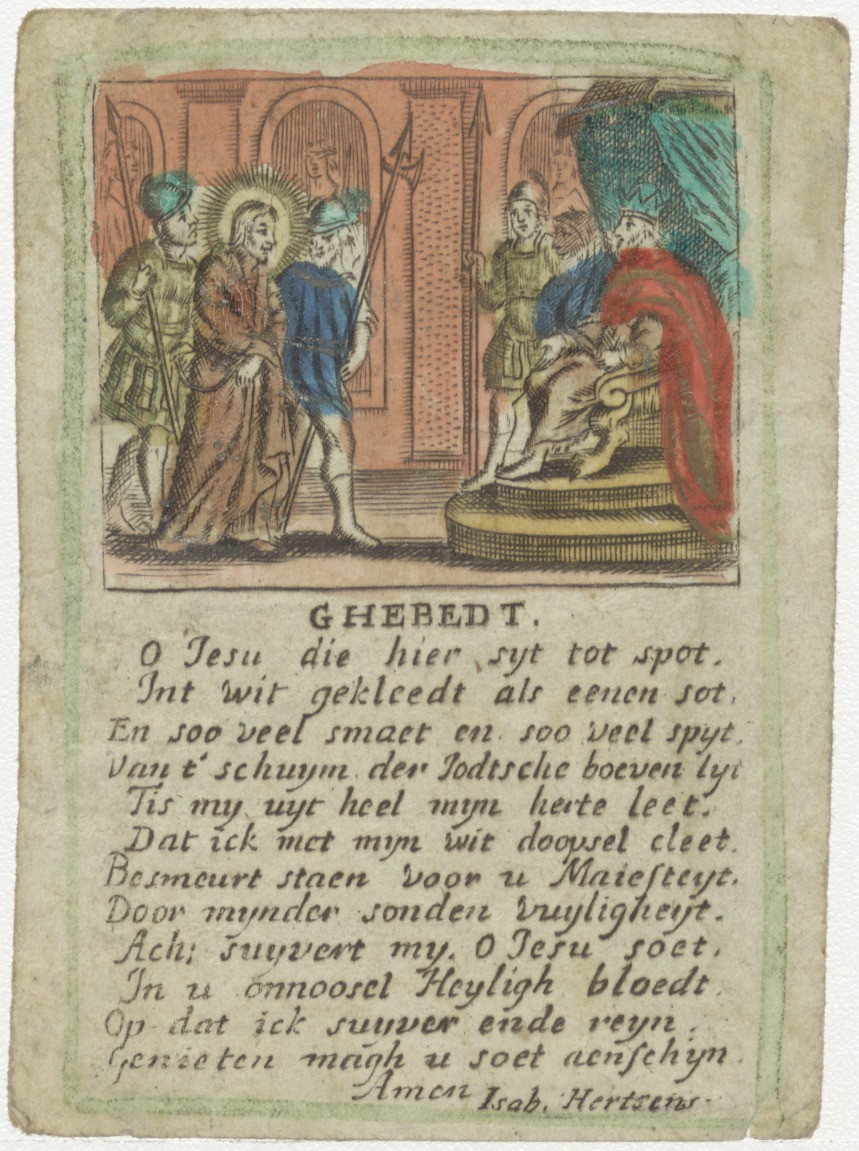 GHEBEDT.
O Iesu die hier syt tot spot.
Int wit gekleedt als eenen sot.
En soo veel smaet en soo veel spyt.
Van t' schuym der Jodtsche boeven lyt
Tis my uyt heel myn herte leet.
Dat ick met myn wit doopsel cleet.
Besmeurt staen voor u Maiesteyt.
Door mynder sonden vuyligheyt.
Ach; suyvert my. O Iesu soet.
In u onnoosel Heyligh bloedt.
Op dat ick suyver ende reyn.
Genieten magh u soet aenschyn.
Amen
Isab. Hertsens.